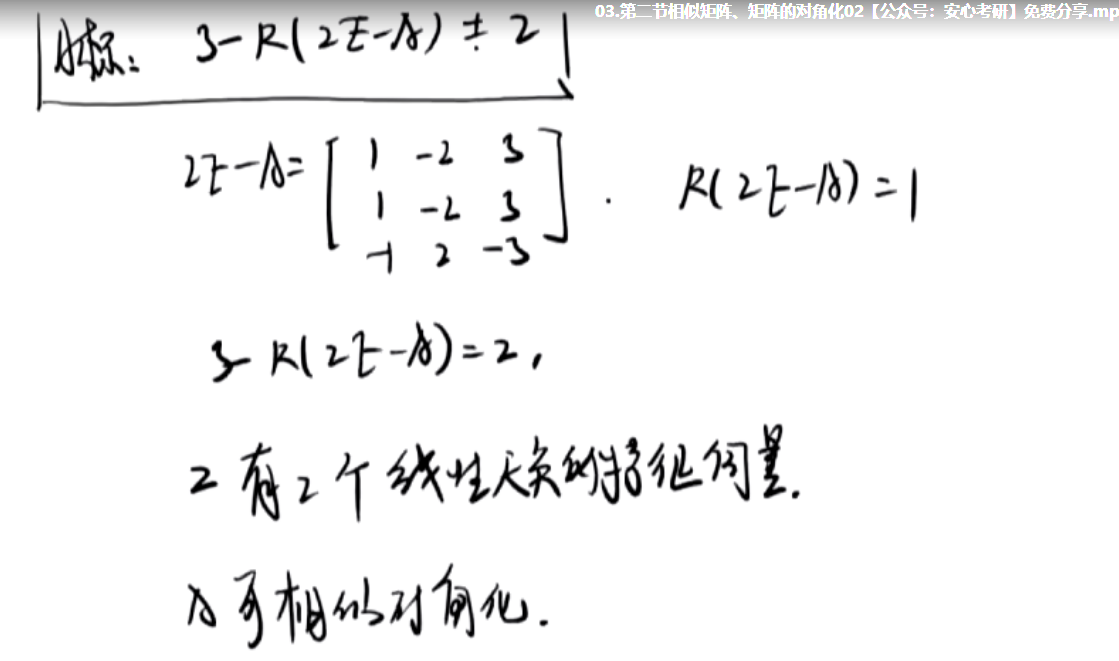 03.第二节相似矩阵、矩阵的对角化02【公众号：安心考研】免费分享.mp
目标： 3-R(2E-A) ≟ 2
2E-A= [ 1 -2 3
1 -2 3
-1 2 -3 ] . R(2E-A)=1
3-R(2E-A)=2,
2 有 2 个 线性无关的特征向量.
A 可相似对角化.